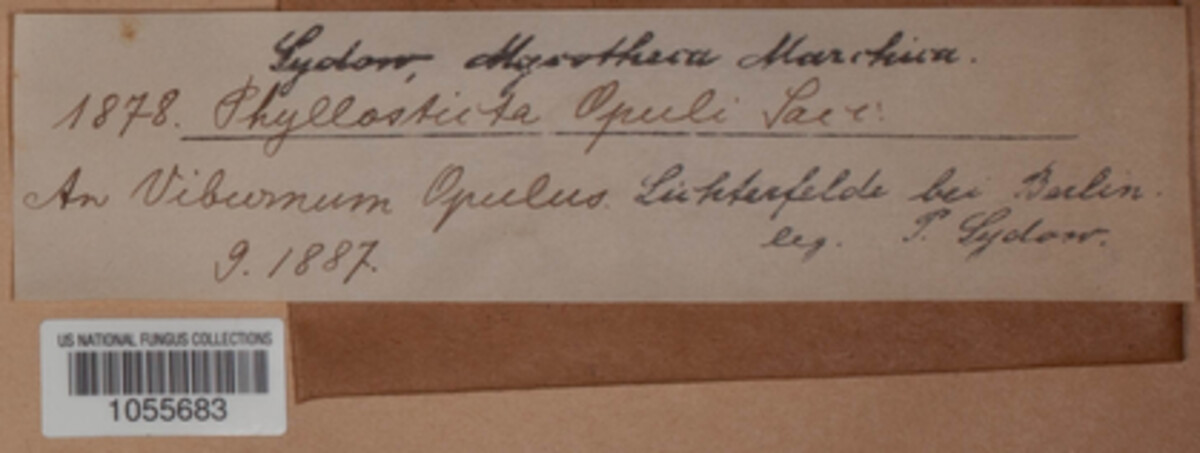 Sydow, Mycotheca Marchica.
1878. Phyllosticta Opuli Sacc.
An Viburnum Opulus. Lichterfelde bei Berlin.
9. 1887. leg. P. Sydow.
US NATIONAL FUNGUS COLLECTIONS
1055683